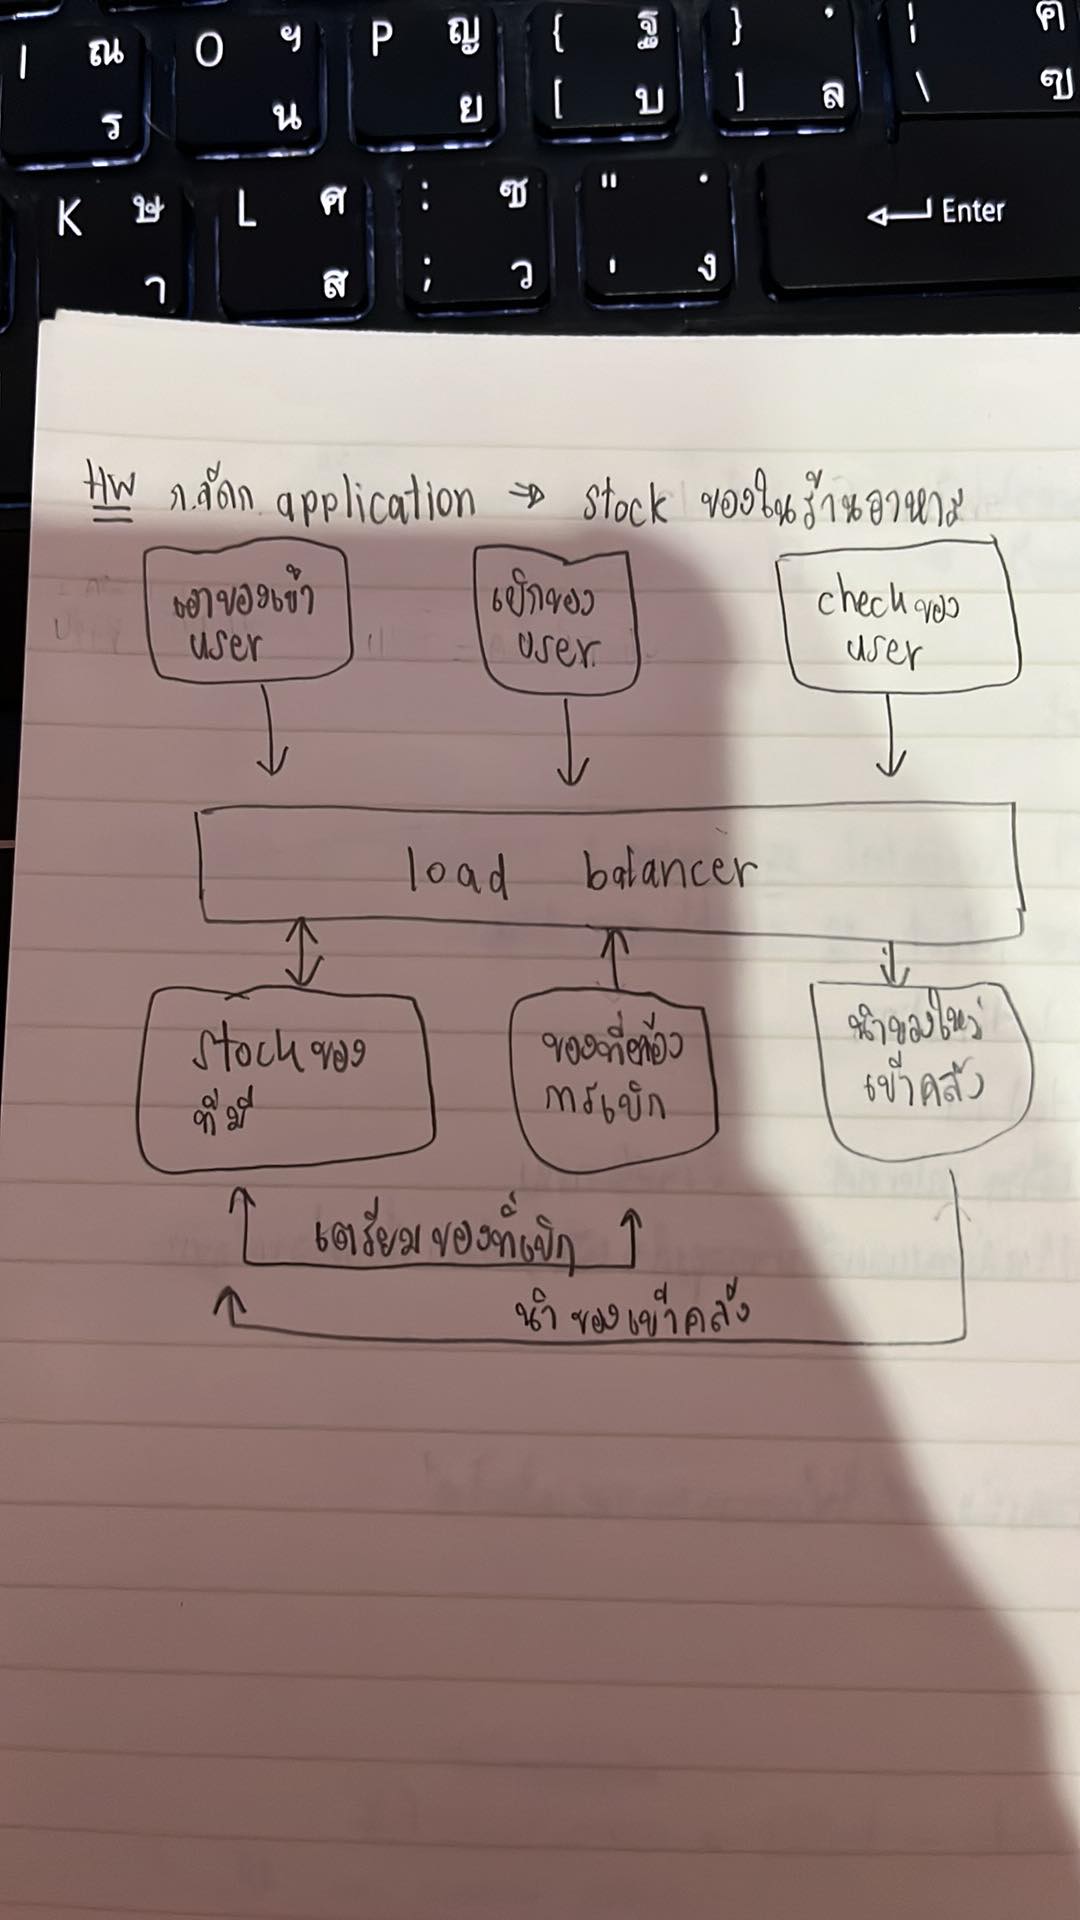 I ณ ร
O ฯ น
P ญ ย
{ ฐ [ บ
} ' ] ล
| ฅ \ ฃ
K ษ า
L ศ ส
: ซ ; ว
" . ' ง
Enter
HW application ⇒ stock ของในร้านอาหาร
เอาของเข้า
user
เบิกของ
user
check ของ
user
load balancer
stock ของ
ที่มี
ของที่ต้อง
การเบิก
นำของใหม่
เข้าคลัง
เตรียมของที่เบิก
นำของเข้าคลัง